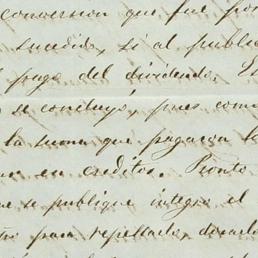 conversion que fué
sucedido, si al public
pago del dividendo. Es
se concluyó, pues com
la suma que pagaron l
en creditos. Pronto
se publique integro el
para repetlarlo,